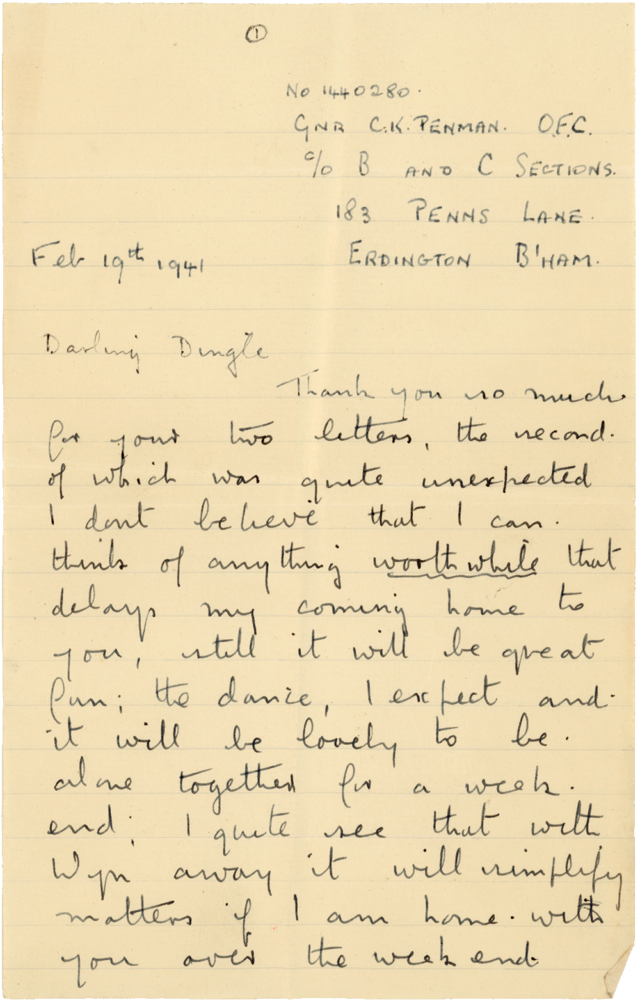 ①
No 1440280.
GNR C.K. PENMAN. O.F.C.
c/o B AND C SECTIONS.
183 PENNS LANE.
ERDINGTON B'HAM.
Feb 19th 1941
Darling Dingle
Thank you so much
for your two letters, the second.
of which was quite unexpected
I dont believe that I can.
think of anything worthwhile that
delays my coming home to
you, still it will be great
fun; the dance, I expect and.
it will be lovely to be.
alone together for a week.
end; I quite see that with
Wyn away it will simplify
matters if I am home. with
you over the week end